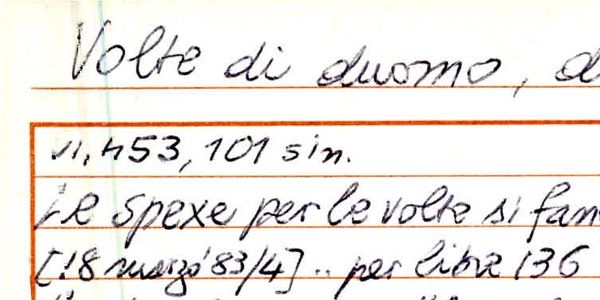 Volte di duomo, d
VI, 453, 101 sin.
Le spexe per le volte si fan
[18 marzo 83/4] .. per libre 136